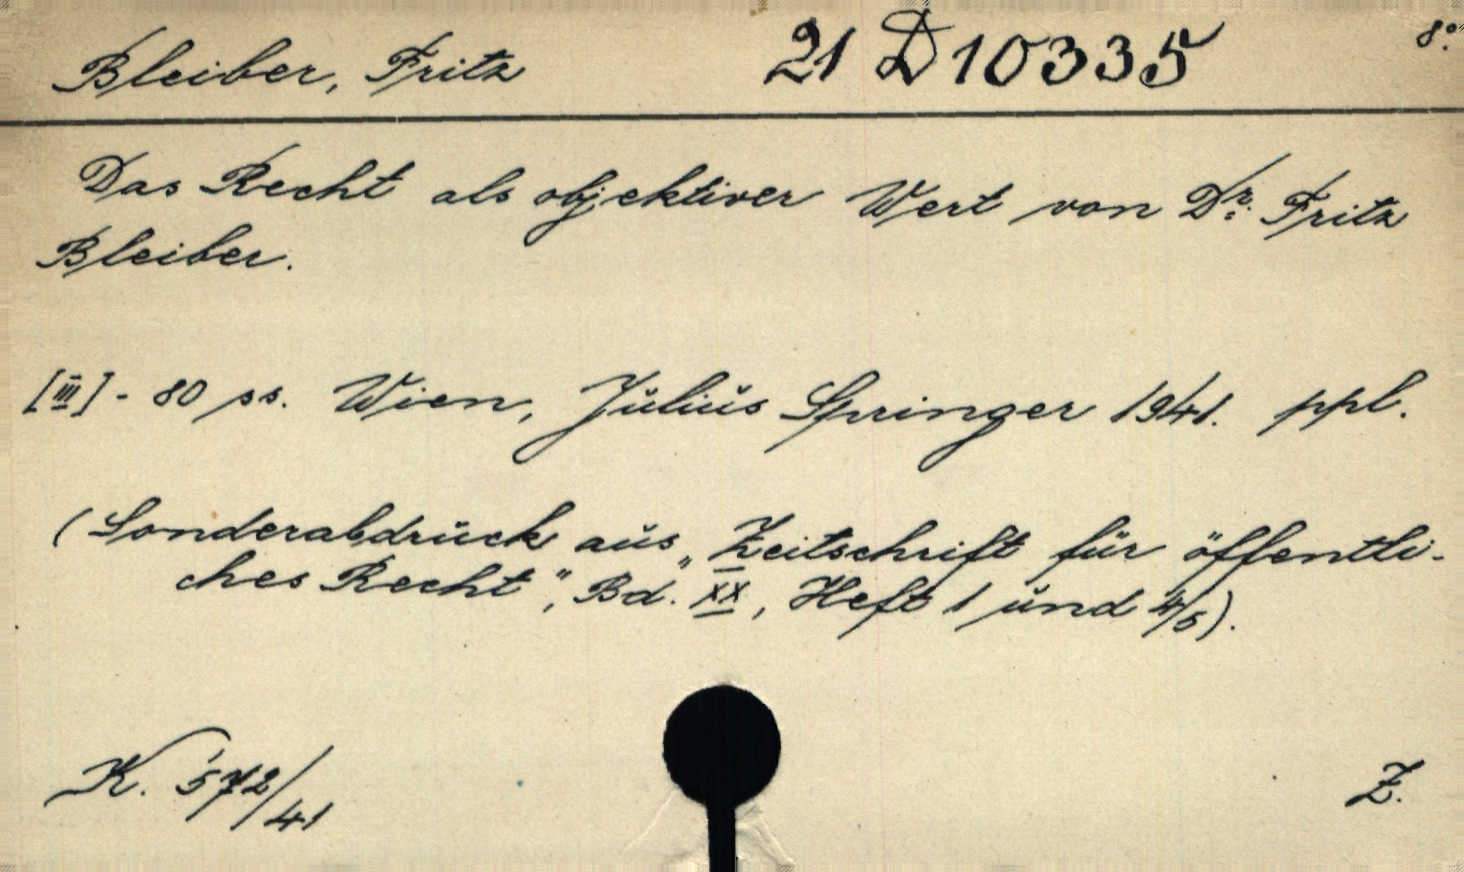 Bleiber, Fritz 21 D 10335 8°.
Das Recht als objektiver Wert von Dr. Fritz
Bleiber.
[III] - 80 ss. Wien, Julius Springer 1941. ppl.
(Sonderabdruck aus „Zeitschrift für öffentli-
ches Recht", Bd. XX, Heft 1 und 4/5).
K. 572/41 Z.